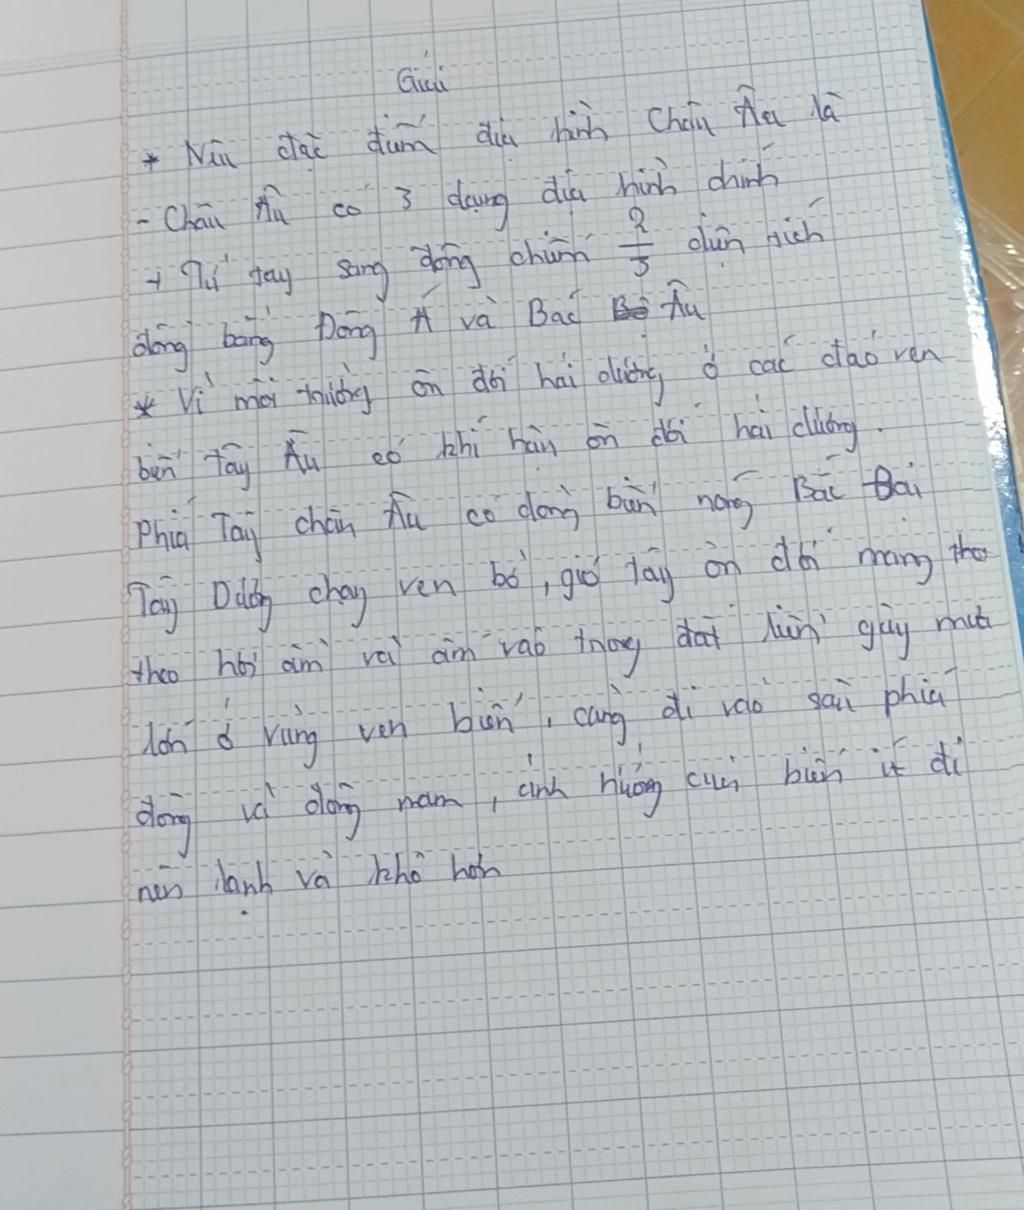 Giải
* Nêu đặc điểm địa hình Châu Âu là
- Châu Âu có 3 dạng địa hình chính
+ Từ tây sang đông chiếm 2/3 diện tích
đồng bằng Đông Á và Bắc Âu
* Vì môi trường ôn đới hải dương ở các đảo ven
biển Tây Âu có khí hậu ôn đới hải dương.
Phía Tây châu Âu có dòng biển nóng Bắc Đại
Tây Dương chạy ven bờ, gió tây ôn đới mang theo
theo hơi ấm và ẩm vào trong đất liền gây mưa
lớn ở vùng ven biển, càng đi vào sâu phía
đông và đông nam, ảnh hưởng của biển ít đi
nên lạnh và khô hơn